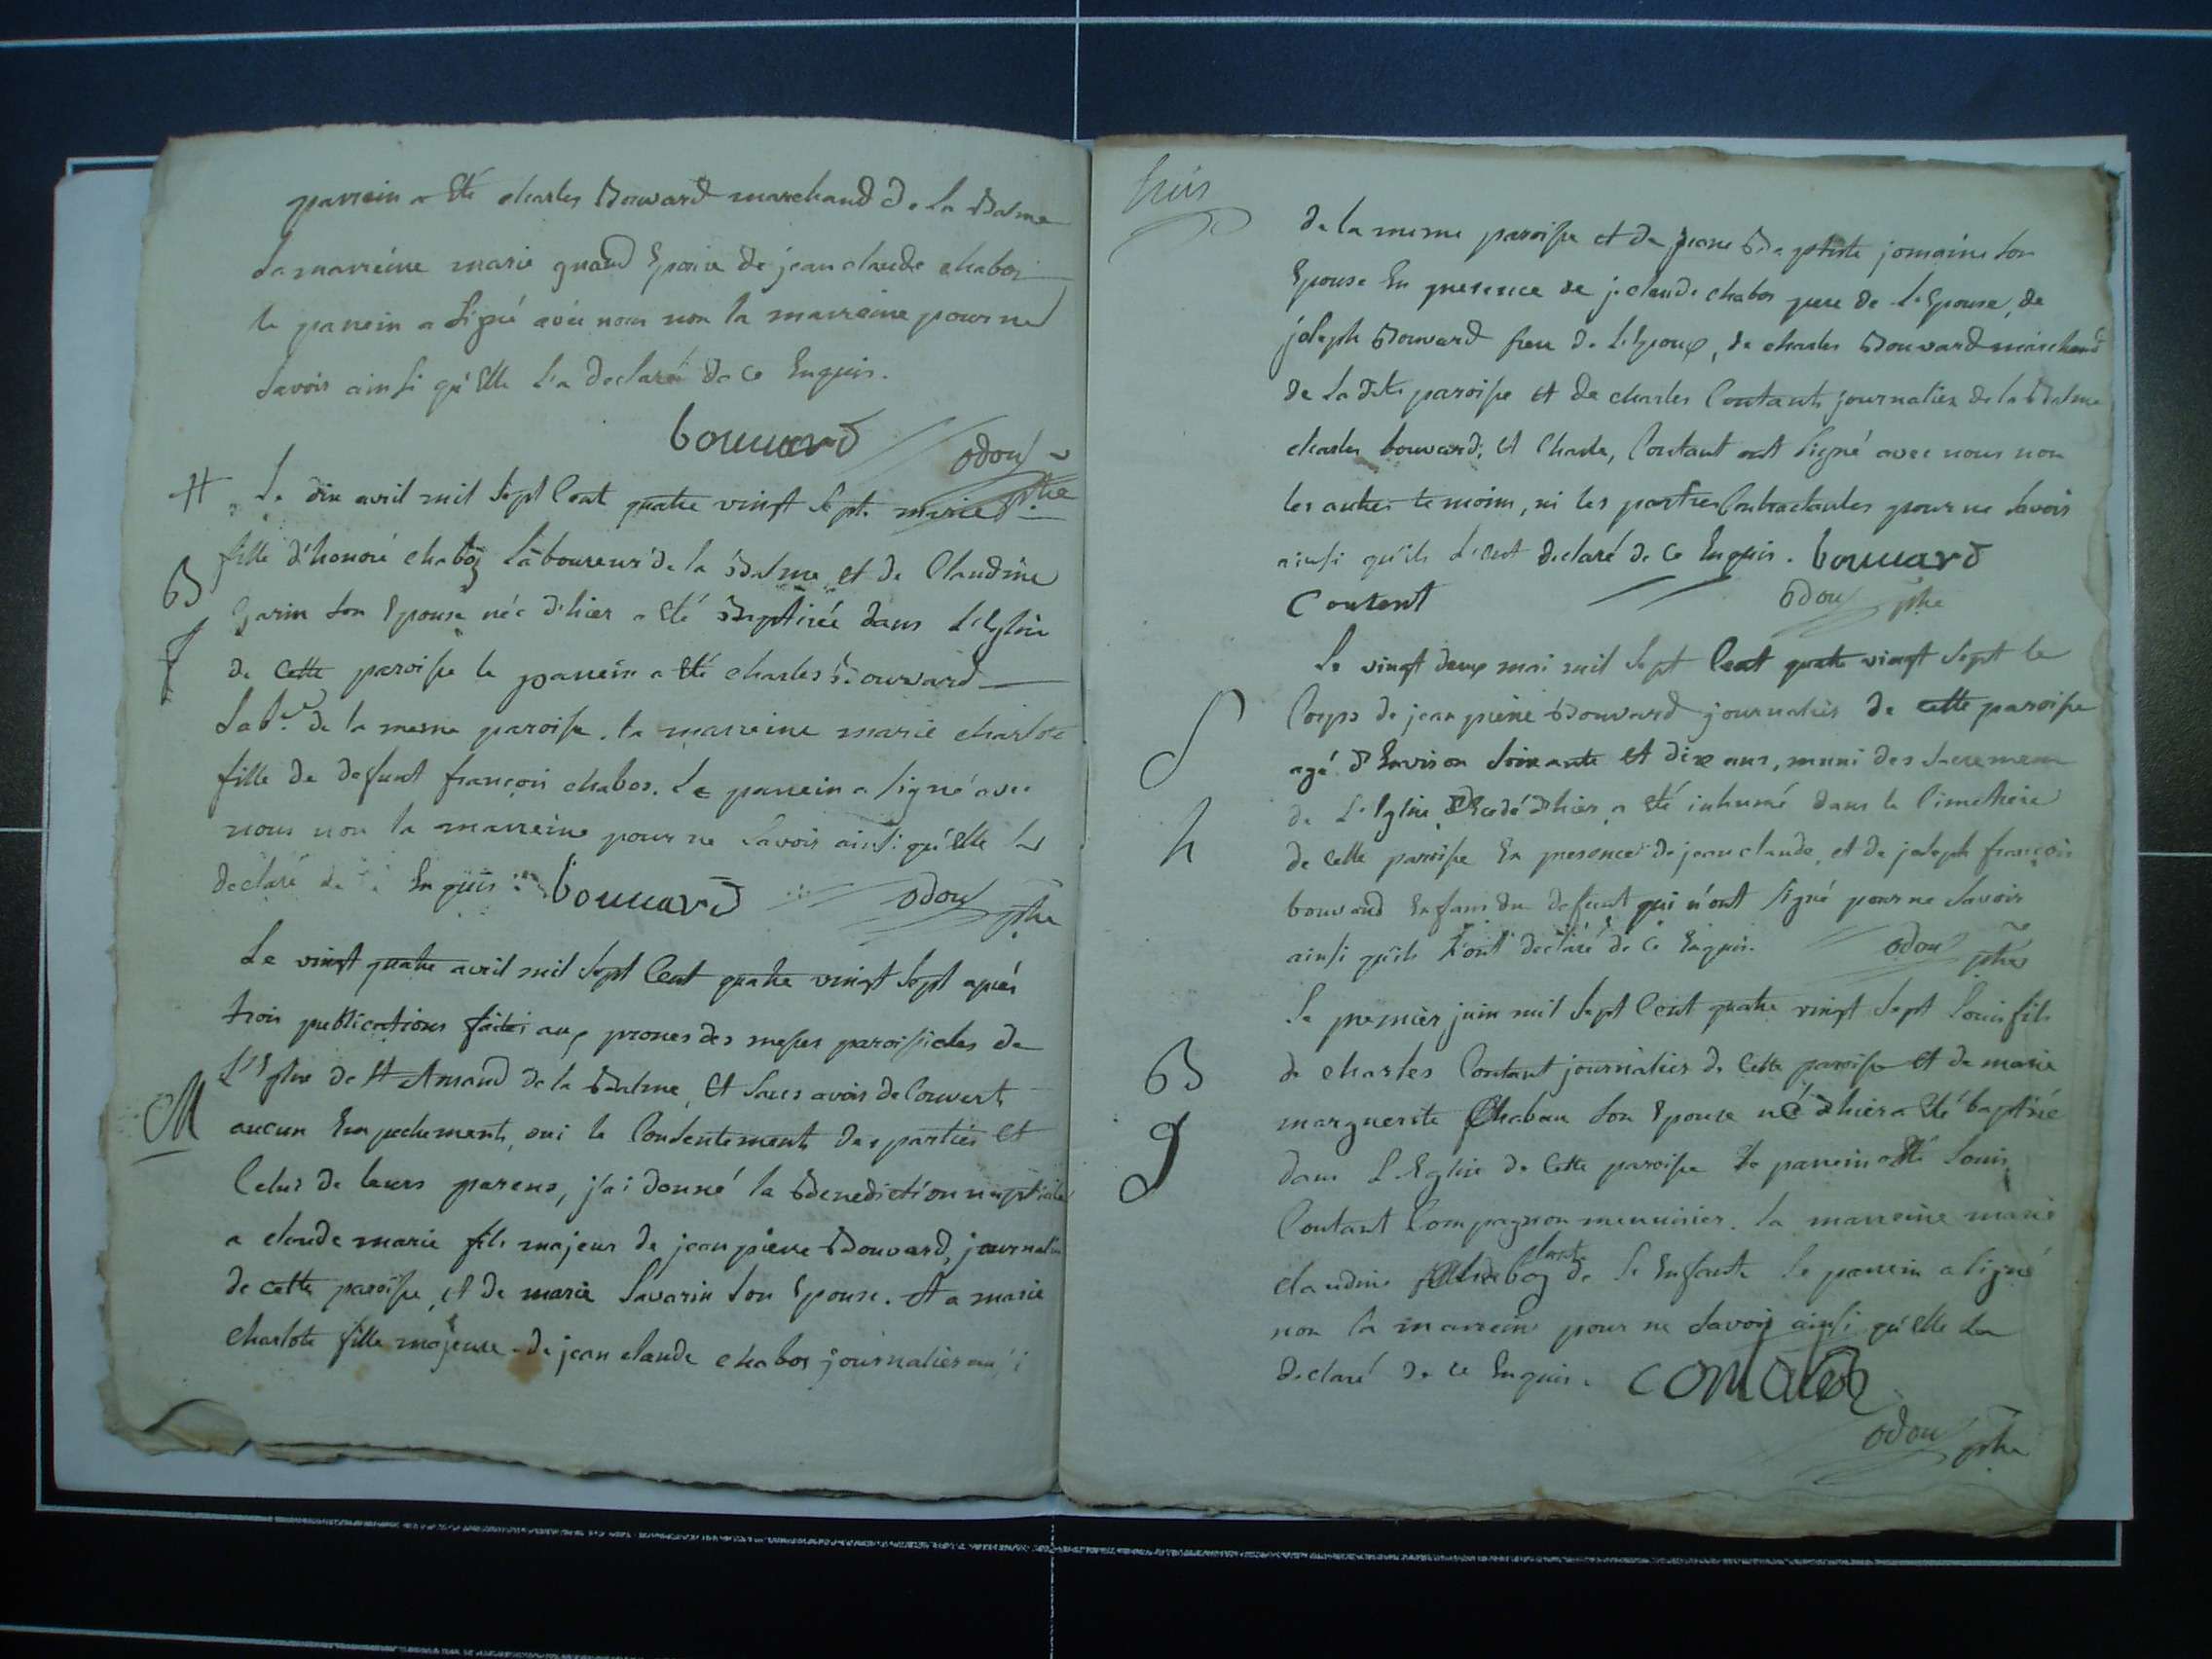 parrein a Eté charles Bouvard marchand de la Balme
La marreine marie Epouse de jean claude chaboz
le parrein a signé avec nous non la marreine pour ne
savoir ainsi qu'Elle l'a declaré de ce Enquis.
bouuard odou ptre
Le dix avril mil sept Cent quatre vingt sept. marie
B fille d'honoré chaboz laboureur de la Balme et de Claudine
Garin son Epouse née d'hier a Eté Baptisée dans L'Eglise
f de Cette paroisse le parrein a Eté charles Bouvard
Lab.r de la meme paroisse. la marreine marie charlote
fille de defunt françois chabos. Le parrein a signé avec
nous non la marreine pour ne savoir ainsi qu'Elle la
declaré de ce Enquis bouuard odou ptre
Le vingt quatre avril mil sept Cent quatre vingt sept après
trois publications faites aux prones des messes paroissiales de
L'Eglise de St Amand de la Balme, Et sans avoir decouvert
M aucun Empechement, oui le Consentement des parties Et
Celui de leurs parens, j'ai donné la Benediction nuptiale
a claude marie fils majeur de jean pierre Bouvard, journalier
de cette paroisse, et de marie Savarin son Epouse. Et a marie
charlote fille majeure de jean claude chabos journalier aussi
trois
de la meme paroisse et de jeane Baptiste jomaine son
Epouse En presence de j. claude chabos pere de L'Epouse, de
joseph Bouvard frere de L'Epoux, de charles Bouvard marchand
de la dite paroisse et de charles Contant journalier de la Balme
charles bouvard, et Charles, Contant ont signé avec nous non
les autres temoins, ni les parties Contractantes pour ne savoir
ainsi qu'ils L'ont declaré de ce Enquis. bouuard
Contant odou ptre
Le vingt deux mai mil sept Cent quatre vingt sept le
S Corps de jean pierre Bouvard journalier de cette paroisse
agé d'Environ soixante et dix ans, muni des sacremens
de L'Eglise, decedé d'hier, a Eté inhumé dans le Cimetiere
h de Cette paroisse En presence de jean claude, et de joseph françois
bouvard Enfans du defunt qui n'ont signé pour ne savoir
ainsi qu'ils L'ont declaré de ce Enquis. odou ptre
Le premier juin mil sept Cent quatre vingt sept Louis fils
B de charles Contant journalier de Cette paroisse et de marie
marguerite Chabau son Epouse né d'hier a Eté baptisé
g dans L'Eglise de Cette paroisse le parrein a Eté Louis
Contant Compagnon menuisier. la marreine marie
claudine chaboz tante de L'Enfant. Le parrein a signé
non la marreine pour ne savoir ainsi qu'Elle La
declaré de ce Enquis.
odou ptre